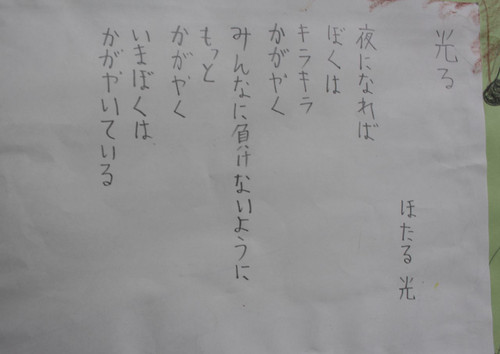 光る
ほたる 光
夜になれば
ぼくは
キラキラ
かがやく
みんなに負けないように
もっと
かがやく
いまぼくは
かがやいている